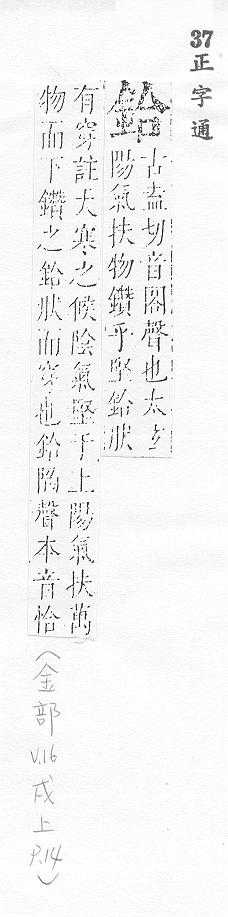 37正字通
鉿
古盍切音閤聲也太玄
陽氣扶物鑽乎堅鉿肰
有穿註大寒之候陰氣堅于上陽氣扶萬
物而下鑽之鉿肰而穿也鉿陷聲本音恰
(金部 V.16 戌上 P.14)